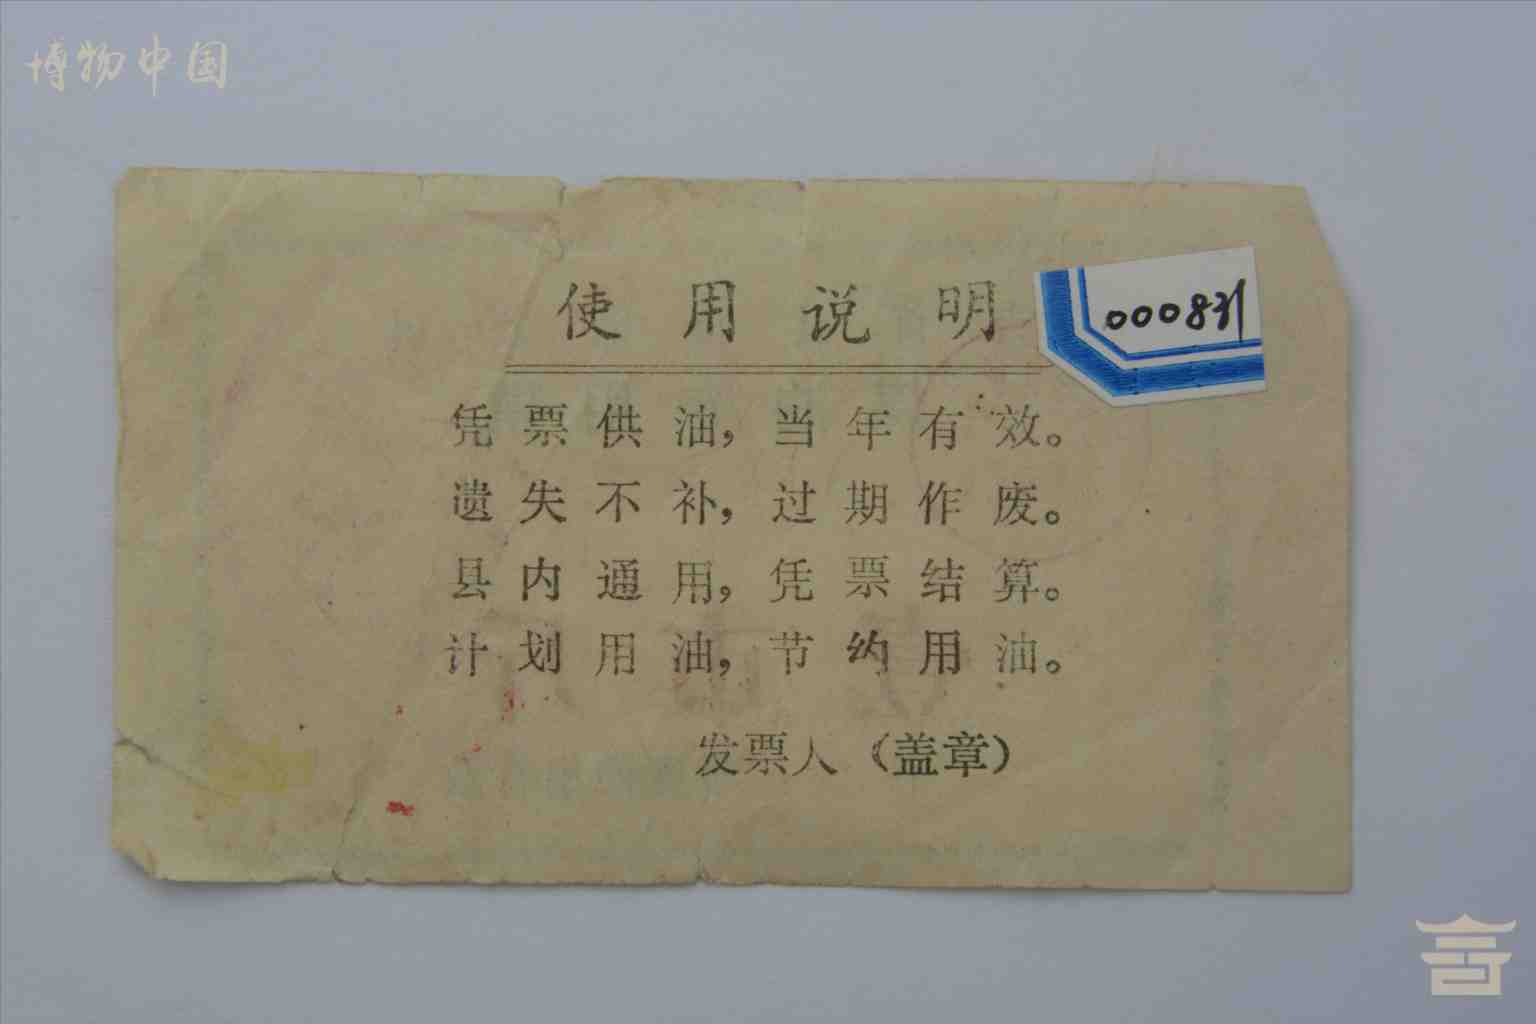 博物中国
使用说明
000831
凭票供油，当年有效。
遗失不补，过期作废。
县内通用，凭票结算。
计划用油，节约用油。
发票人（盖章）